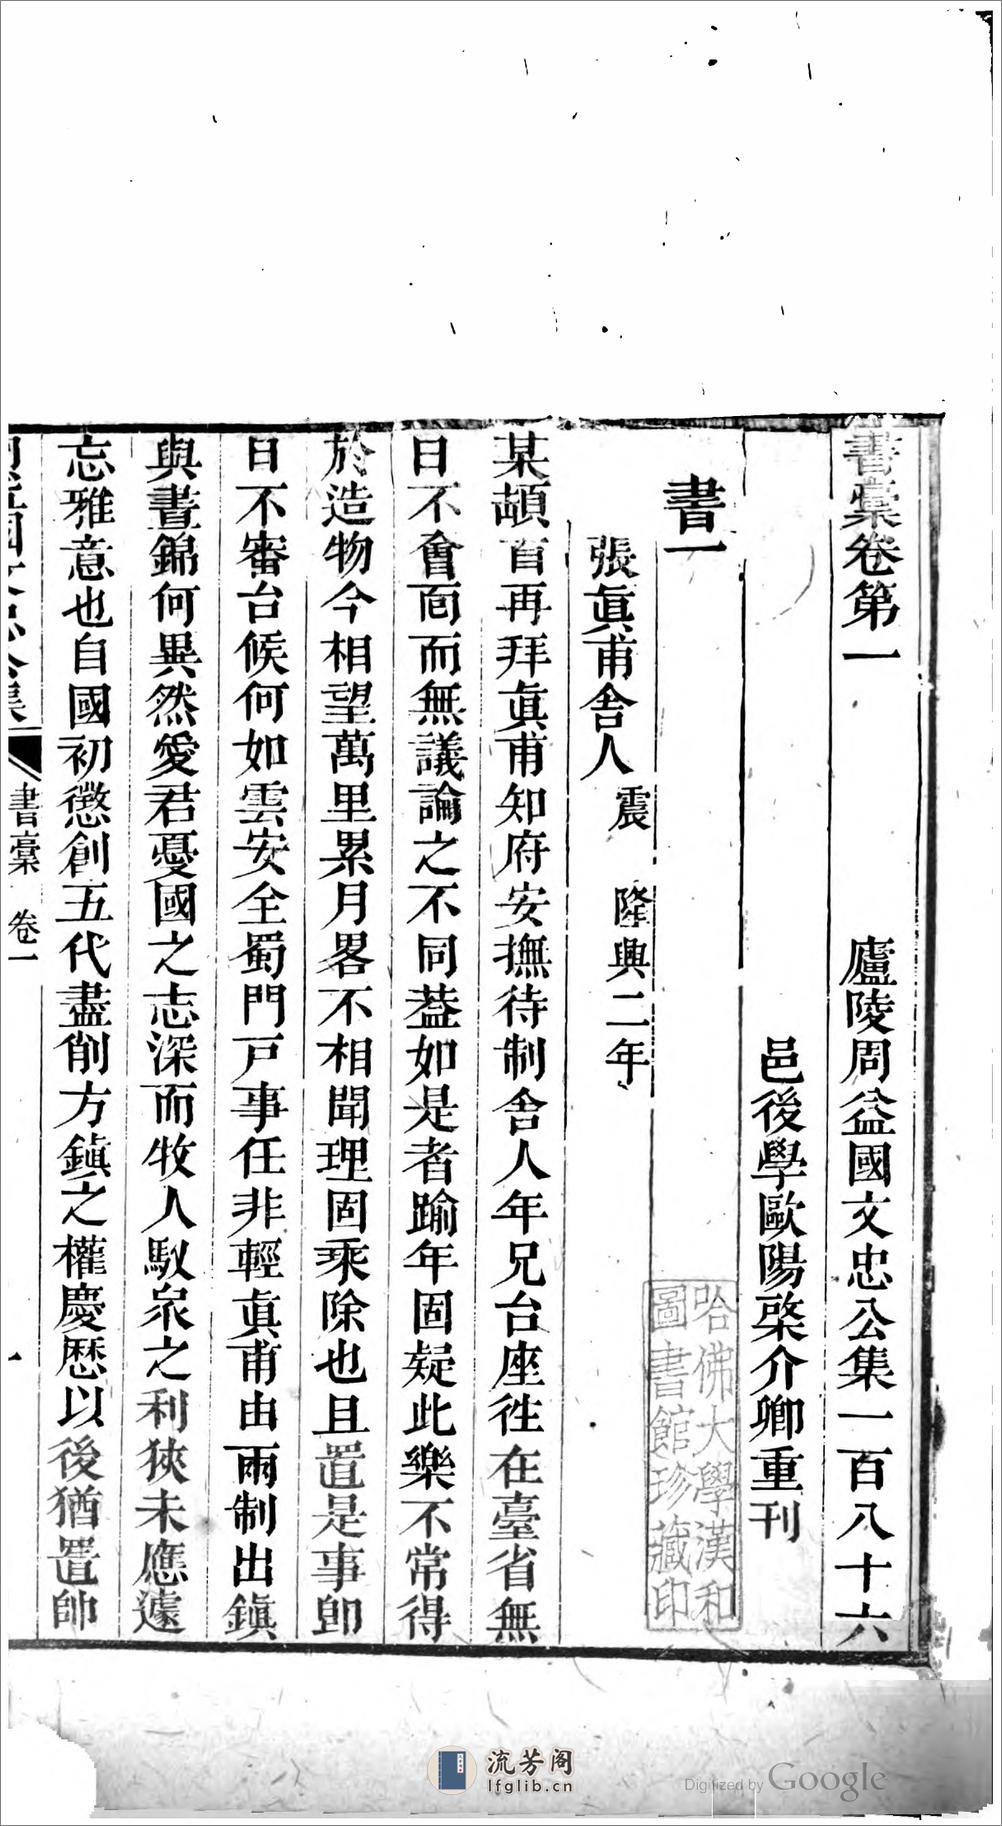 書稾卷第一　廬陵周益國文忠公集一百八十六
邑後學歐陽棨介卿重刊
書一
張眞甫舍人 震 隆興二年
某頓首再拜眞甫知府安撫待制舍人年兄台座徃在臺省無
日不會面而無議論之不同葢如是者踰年固疑此樂不常得
於造物今相望萬里累月畧不相聞理固乘除也且置是事卽
日不審台候何如雲安全蜀門戸事任非輕眞甫由兩制出鎭
與晝錦何異然愛君憂國之志深而牧人馭衆之利狹未應遽
忘雅意也自國初懲創五代盡削方鎭之權慶歷以後猶置帥
周益國文忠公集
書稾 卷一
一
哈佛大學漢和
圖書館珍藏印
流芳阁
lfglib.cn
Digitized by Google